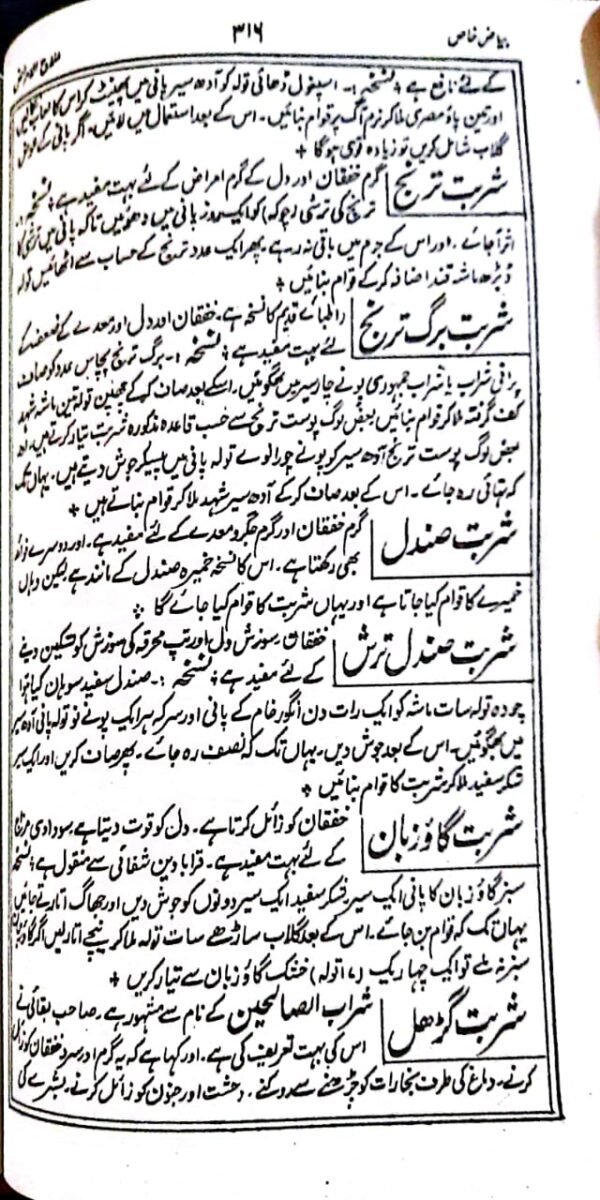 بیاض خاص
۳۱۶
علاج الامراض
کے لئے نافع ہے ؛ نسخہ :۔ اسپغول ڈھائی تولہ کو آدھ سیر پانی میں پھینٹ کر اس کا لعاب نکالیں
اور تین پاؤ مصری ملا کر نرم آگ پر قوام بنائیں۔ اس کے بعد استعمال میں لائیں۔ اگر پانی کے عوض
گلاب شامل کریں تو زیادہ قوی ہوگا +
شربت ترنج
گرم خفقان اور دل کے گرم امراض کے لئے بہت مفید ہے ؛ نسخہ :۔
ترنج کی ترشی (چوکہ) کو ایک روز پانی میں دھوئیں تاکہ پانی میں ترشی کا
اثر آجائے۔ اور اس کے جرم میں باقی نہ رہے۔ پھر ایک عدد ترنج کے حساب سے اٹھائیس تولہ
ڈیڑھ ماشہ قند اضافہ کرکے قوام بنائیں +
شربت برگ ترنج
(اطبائے قدیم کا نسخہ ہے۔ خفقان اور دل اور معدے کے ضعف کے
لئے بہت مفید ہے ؛ نسخہ :۔ برگ ترنج پچاس عدد کو صاف
پرانی شراب یا شراب جمہوری پونے چار سیر میں بھگوئیں۔ اسکے بعد صاف کرکے چھپن تولہ تین ماشہ شہد
کف گرفتہ ملا کر قوام بنائیں بعض لوگ پوست ترنج سے حسب قاعدہ مذکورہ شربت تیار کرتے ہیں، اور
بعض لوگ پوست ترنج آدھ سیر کو پونے چورالوے تولہ پانی میں پیسکر جوش دیتے ہیں۔ یہاں تک
کہ تہائی رہ جائے۔ اس کے بعد صاف کرکے آدھ سیر شہد ملا کر قوام بناتے ہیں +
شربت صندل
گرم خفقان اور گرم جگر و معدے کے لئے مفید ہے۔ اور دوسرے فوائد
بھی رکھتا ہے۔ اس کا نسخہ خمیرہ صندل کے مانند ہے لیکن وہاں
خمیرے کا قوام کیا جاتا ہے اور یہاں شربت کا قوام کیا جائے گا ؛
شربت صندل ترش
خفقان۔ سوزش دل اور تپ محرقہ کی سوزش کو تسکین دینے
کے لئے مفید ہے ؛ نسخہ :۔ صندل سفید سوہان کیا ہوا
چودہ تولہ سات ماشہ کو ایک رات دن انگور خام کے پانی اور سرکہ ہر ایک پونے نو تولہ پانی آدھ سیر
میں بھگوئیں۔ اس کے بعد جوش دیں۔ یہاں تک کہ نصف رہ جائے۔ پھر صاف کریں اور ایک سیر
شکر سفید ملا کر شربت کا قوام بنائیں +
شربت گاؤزبان
خفقان کو زائل کرتا ہے۔ دل کو قوت دیتا ہے۔ سوداوی مزاج
کے لئے بہت مفید ہے۔ قرابادین شفائی سے منقول ہے ؛ نسخہ
سبز گاؤزبان کا پانی ایک سیر۔ شکر سفید ایک سیر دونوں کو جوش دیں اور جھاگ اتارتے جائیں
یہاں تک کہ قوام بن جائے۔ اس کے بعد گلاب ساڑھے سات تولہ ملا کر نیچے اتار لیں اگر گاؤزبان
سبز نہ ملے تو ایک چہاریک (۱۷ تولہ) خشک گاؤزبان سے تیار کریں +
شربت گڑھل
شراب الصالحین کے نام سے مشہور ہے۔ صاحب بقائی نے
اس کی بہت تعریف کی ہے۔ اور کہا ہے کہ یہ گرم اور سرد خفقان کو زائل
کرنے۔ دماغ کی طرف بخارات کو چڑھنے سے روکنے۔ وحشت اور جنون کو زائل کرنے۔ بشرے کی